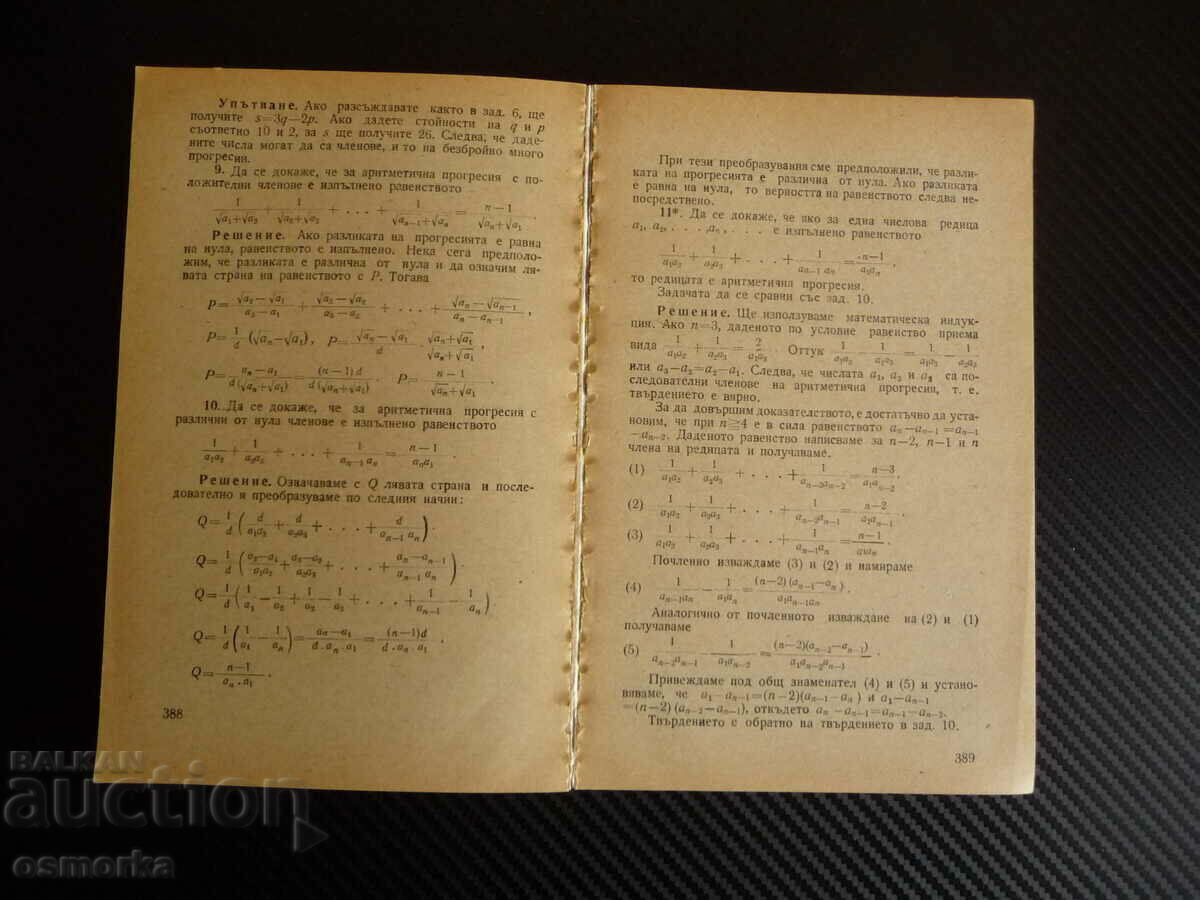 Упътване. Ако разсъждавате както в зад. 6, ще
получите s=3q—2p. Ако дадете стойности на q и p
съответно 10 и 2, за s ще получите 26. Следва, че даде-
ните числа могат да са членове, и то на безбройно много
прогресии.
9. Да се докаже, че за аритметична прогресия с по-
ложителни членове е изпълнено равенството
1/(√a₁+√a₂) + 1/(√a₂+√a₃) + . . . + 1/(√aₙ₋₁+√aₙ) = (n—1)/(√aₙ+√a₁).
Решение. Ако разликата на прогресията е равна
на нула, равенството е изпълнено. Нека сега предполо-
жим, че разликата е различна от нула и да означим ля-
вата страна на равенството с P. Тогава
P= (√a₂—√a₁)/(a₂—a₁) + (√a₃—√a₂)/(a₃—a₂) + . . . + (√aₙ—√aₙ₋₁)/(aₙ—aₙ₋₁),
P= 1/d (√aₙ—√a₁), P= (√aₙ—√a₁)/d · (√aₙ+√a₁)/(√aₙ+√a₁),
P= (aₙ—a₁)/(d(√aₙ+√a₁)) = (n—1)d/(d(√aₙ+√a₁)). P= (n—1)/(√aₙ+√a₁).
10. Да се докаже, че за аритметична прогресия с
различни от нула членове е изпълнено равенството
1/(a₁a₂) + 1/(a₂a₃) + . . . + 1/(aₙ₋₁aₙ) = (n—1)/(aₙa₁).
Решение. Означаваме с Q лявата страна и после-
дователно я преобразуваме по следния начин:
Q= 1/d (d/(a₁a₂) + d/(a₂a₃) + . . . + d/(aₙ₋₁aₙ)).
Q= 1/d ((a₂—a₁)/(a₁a₂) + (a₃—a₂)/(a₂a₃) + . . . + (aₙ—aₙ₋₁)/(aₙ₋₁aₙ))
Q= 1/d (1/a₁ — 1/a₂ + 1/a₂ — 1/a₃ + . . . + 1/aₙ₋₁ — 1/aₙ)
Q= 1/d (1/a₁ — 1/aₙ) = (aₙ—a₁)/(d.aₙ.a₁) = (n—1)d/(d.aₙ.a₁).
Q= (n—1)/(aₙ.a₁).
388
При тези преобразувания сме предположили, че разли-
ката на прогресията е различна от нула. Ако разликата
е равна на нула, то верността на равенството следва не-
посредствено.
11*. Да се докаже, че ако за една числова редица
a₁, a₂, . . . ,aₙ, . . . е изпълнено равенството
1/(a₁a₂) + 1/(a₂a₃) + . . . + 1/(aₙ₋₁aₙ) = (n—1)/(a₁aₙ),
то редицата е аритметична прогресия.
Задачата да се сравни със зад. 10.
Решение. Ще използуваме математическа индук-
ция. Ако n=3, даденото по условие равенство приема
вида 1/(a₁a₂) + 1/(a₂a₃) = 2/(a₁a₃). Оттук 1/(a₁a₂) — 1/(a₁a₃) = 1/(a₁a₃) — 1/(a₂a₃)
или a₃—a₂=a₂—a₁. Следва, че числата a₁, a₂ и a₃ са по-
следователни членове на аритметична прогресия, т. е.
твърдението е вярно.
За да довършим доказателството, е достатъчно да уста-
новим, че при n≧4 е в сила равенството aₙ—aₙ₋₁=aₙ₋₁
—aₙ₋₂. Даденото равенство написваме за n—2, n—1 и n
члена на редицата и получаваме.
(1) 1/(a₁a₂) + 1/(a₂a₃) + . . . + 1/(aₙ₋₃aₙ₋₂) = (n—3)/(a₁aₙ₋₂).
(2) 1/(a₁a₂) + 1/(a₂a₃) + . . . + 1/(aₙ₋₂aₙ₋₁) = (n—2)/(a₁aₙ₋₁)
(3) 1/(a₁a₂) + 1/(a₂a₃) + . . . + 1/(aₙ₋₁aₙ) = (n—1)/(a₁aₙ)
Почленно изваждаме (3) и (2) и намираме
(4) 1/(aₙ₋₁aₙ) — 1/(a₁aₙ) = (n—2)(aₙ₋₁—aₙ)/(a₁aₙ₋₁aₙ).
Аналогично от почленното изваждане на (2) и (1)
получаваме
(5) 1/(aₙ₋₂aₙ₋₁) — 1/(a₁aₙ₋₂) = (n—2)(aₙ₋₂—aₙ₋₁)/(a₁aₙ₋₂aₙ₋₁).
Привеждаме под общ знаменател (4) и (5) и устано-
вяваме, че a₁—aₙ₋₁=(n—2)(aₙ₋₁—aₙ) и a₁—aₙ₋₁
=(n—2)(aₙ₋₂—aₙ₋₁), откъдето aₙ—aₙ₋₁=aₙ₋₁—aₙ₋₂.
Твърдението е обратно на твърдението в зад. 10.
389
BALKAN
auction
osmorka